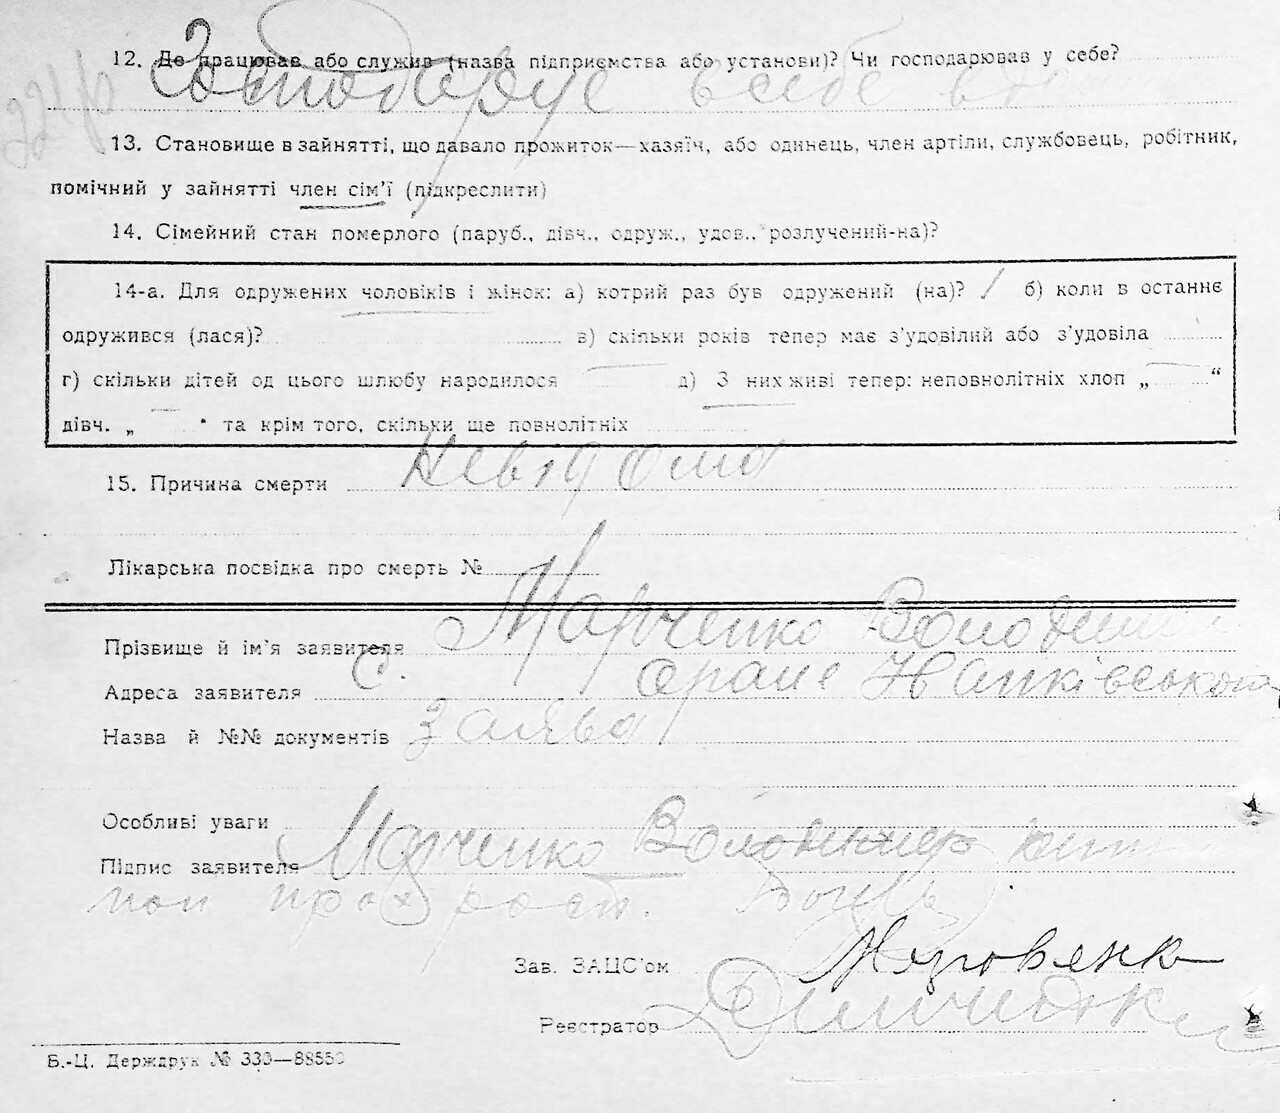 12. Де працював або служив (назва підприємства або установи)? Чи господарював у себе?
Господарує в себе
13. Становище в зайнятті, що давало прожиток—хазяїн, або одинець, член артіли, службовець, робітник,
помічний у зайнятті член сім'ї (підкреслити)
14. Сімейний стан померлого (паруб., дівч., одруж., удов., розлучений-на)?
14-а. Для одружених чоловіків і жінок: а) котрий раз був одружений (на)? / б) коли в останнє
одружився (лася)? в) скільки років тепер має з'удовілий або з'удовіла
г) скільки дітей од цього шлюбу народилося — д) З них живі тепер: неповнолітніх хлоп „ — “
дівч. „ — " та крім того, скільки ще повнолітніх
15. Причина смерти Невідома
Лікарська посвідка про смерть №
Прізвище й ім'я заявителя Марченко Володимир
Адреса заявителя С.
Назва й №№ документів Заява
Особливі уваги
Підпис заявителя Марченко Володимир
Зав. ЗАЦС'ом
Реєстратор
Б.-Ц. Держдрук № 333—88550